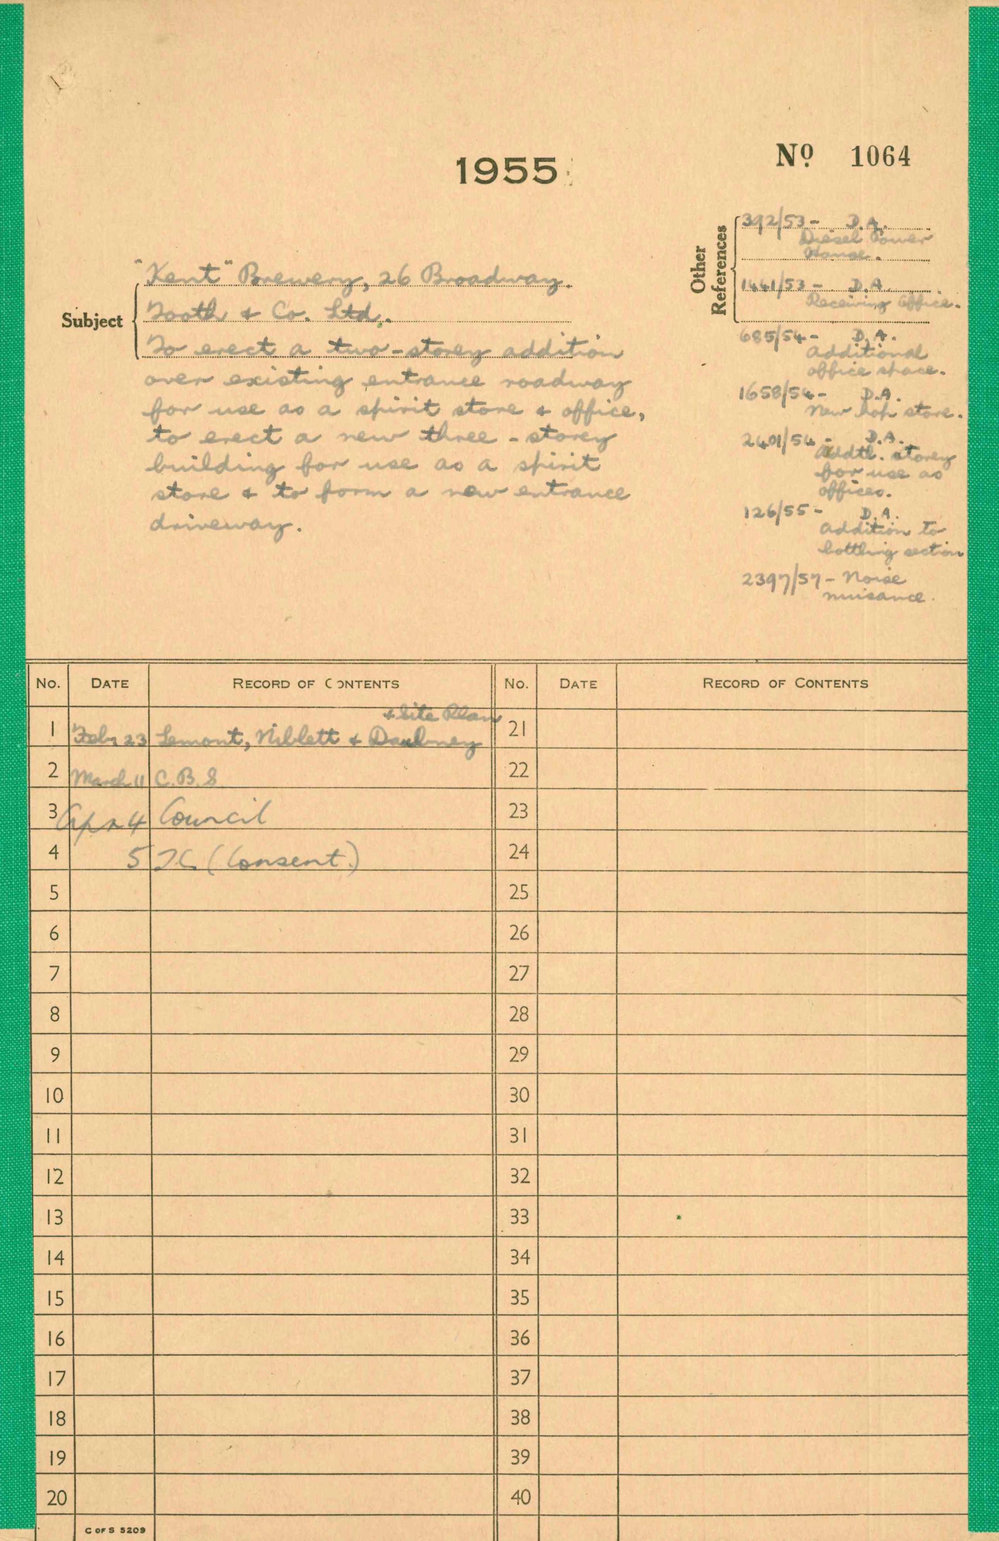 1955
No 1064
Other References
392/53 - D.A.
Diesel Power
House.
1441/53 - D.A.
Receiving Office.
685/54 - D.A.
Additional
office space.
1658/54 - D.A.
New hop store.
2401/54 - D.A.
Addtl. storey
for use as
offices.
126/55 - D.A.
Addition to
bottling section
2397/57 - Noise
nuisance.
Subject
"Kent" Brewery, 26 Broadway.
Tooth & Co. Ltd.
To erect a two-storey addition
over existing entrance roadway
for use as a spirit store & office,
to erect a new three-storey
building for use as a spirit
store & to form a new entrance
driveway.
No. DATE RECORD OF CONTENTS No. DATE RECORD OF CONTENTS
& Site Plan
1 Feb 23 Lemont, Niblett & Daubney 21
2 March 11 C.B.S 22
3 Apr 4 Council 23
4 5 T.C. (Consent.) 24
5 25
6 26
7 27
8 28
9 29
10 30
11 31
12 32
13 33
14 34
15 35
16 36
17 37
18 38
19 39
20 40
C OF S 5209